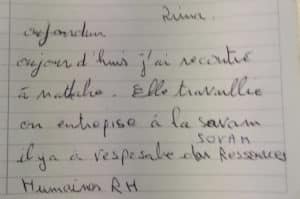 Rima.
aujourdui
aujour d'huis j'ai recontré
à nathalie. Elle travullie
en entrepise à la savam
SOVAM
il y a respesable das Ressources
Humaines RH